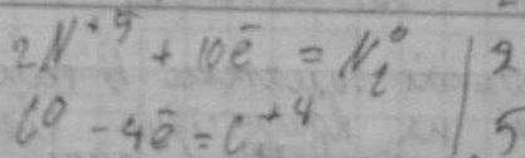 2N⁺⁵ + 10ē = N₂⁰ | 2
C⁰ - 4ē = C⁺⁴ | 5